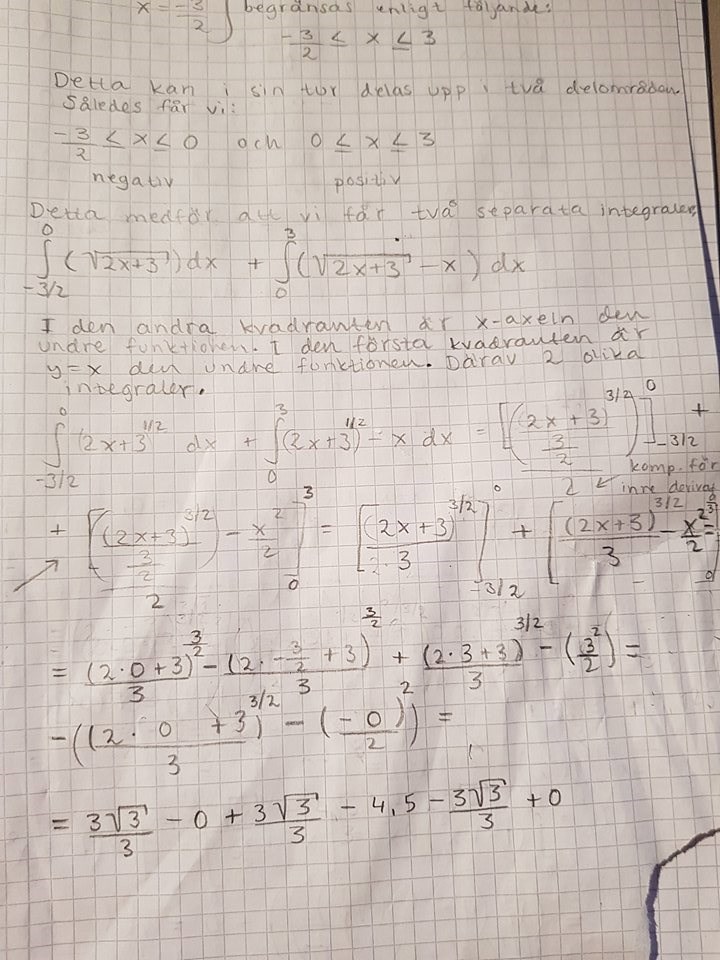 x = -3/2 } begränsas enligt följande:
-3/2 ≤ x ≤ 3
Detta kan i sin tur delas upp i två delområden.
Således får vi:
-3/2 ≤ x ≤ 0 och 0 ≤ x ≤ 3
negativ positiv
Detta medför att vi får två separata integraler,
∫_{-3/2}^{0} (√(2x+3)) dx + ∫_{0}^{3} (√(2x+3) - x) dx
I den andra kvadranten är x-axeln den
undre funktionen. I den första kvadranten är
y = x den undre funktionen. Därav 2 olika
integraler.
∫_{-3/2}^{0} (2x+3)^{1/2} dx + ∫_{0}^{3} (2x+3)^{1/2} - x dx = [((2x+3)^{3/2} / (3/2)) / 2]_{-3/2}^{0} +
2 ← komp. för
inre derivat
+ [((2x+3)^{3/2} / (3/2)) / 2 - x^2/2]_{0}^{3} = [(2x+3)^{3/2} / 3]_{-3/2}^{0} + [(2x+3)^{3/2} / 3 - x^2/2]_{0}^{3} =
= (2·0+3)^{3/2} / 3 - (2·-3/2+3)^{3/2} / 3 + (2·3+3)^{3/2} / 3 - (3^2/2) =
- ((2·0+3)^{3/2} / 3 - (-0/2)^2) =
= 3√3/3 - 0 + 3√3/3 - 4,5 - 3√3/3 + 0